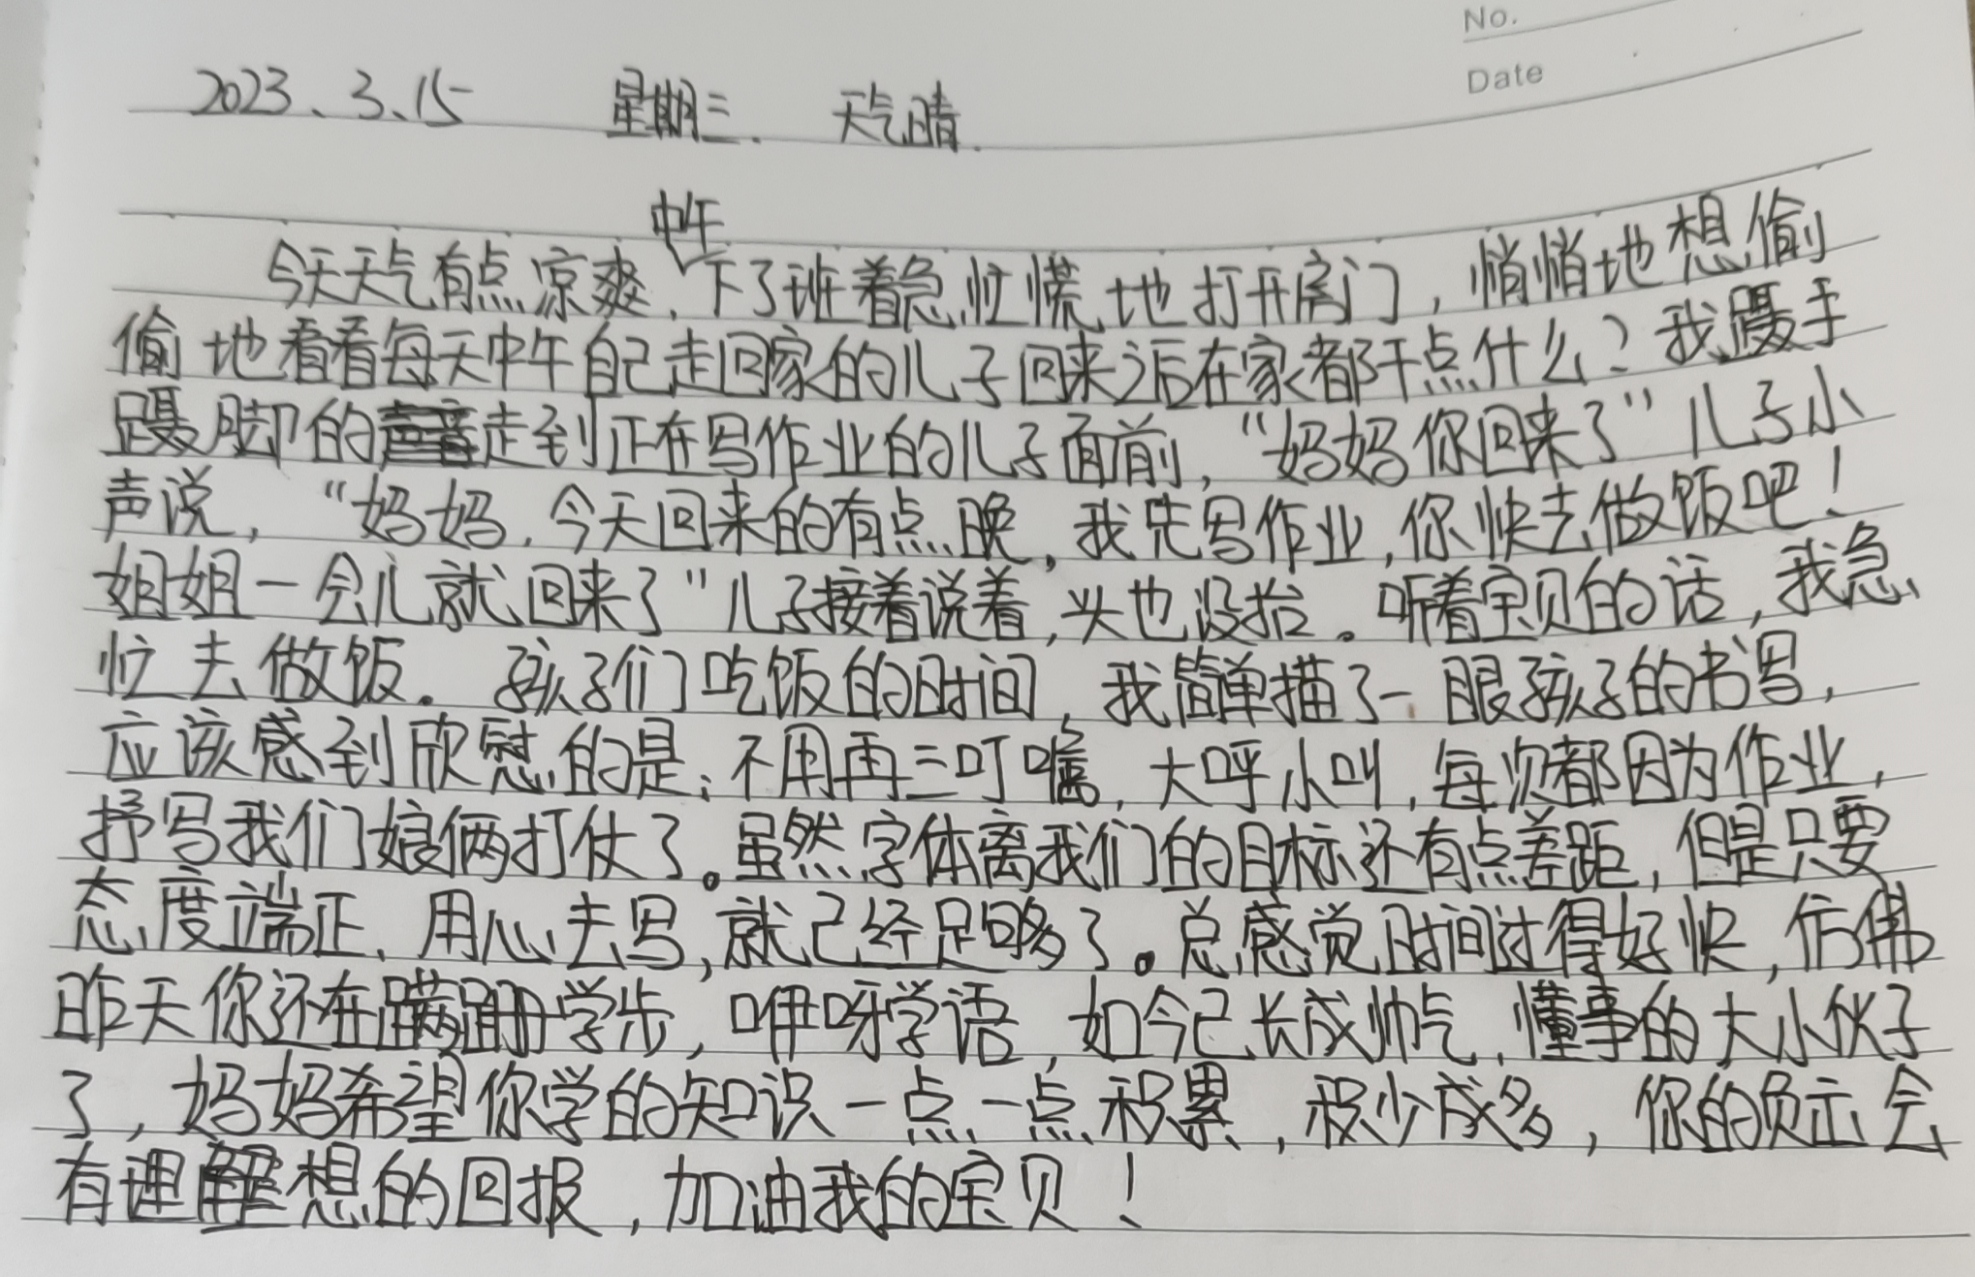 No.
Date
2023、3、15 星期三. 天气晴.
中午
今天天气有点凉爽,下了班着急忙慌地打开房门,悄悄地想偷
偷地看看每天中午自己走回家的儿子回来之后在家都干点什么?我蹑手
蹑脚的走到正在写作业的儿子面前,“妈妈你回来了”儿子小
声说,“妈妈.今天回来的有点晚,我先写作业,你快去做饭吧!
姐姐一会儿就回来了”儿子接着说着,头也没抬。听着宝贝的话,我急
忙去做饭。孩子们吃饭的时间,我简单描了一眼孩子的书写,
应该感到欣慰的是:不用再三叮嘱,大呼小叫,每次都因为作业,
抒写我们娘俩打仗了。虽然字体离我们的目标还有点差距,但是只要
态度端正.用心去写,就已经足够了。总感觉时间过得好快,仿佛
昨天你还在蹒跚学步,咿呀学语,如今已长成帅气.懂事的大小伙子
了,妈妈希望你学的知识一点一点积累,积少成多,你的付出会
有理想的回报,加油我的宝贝!